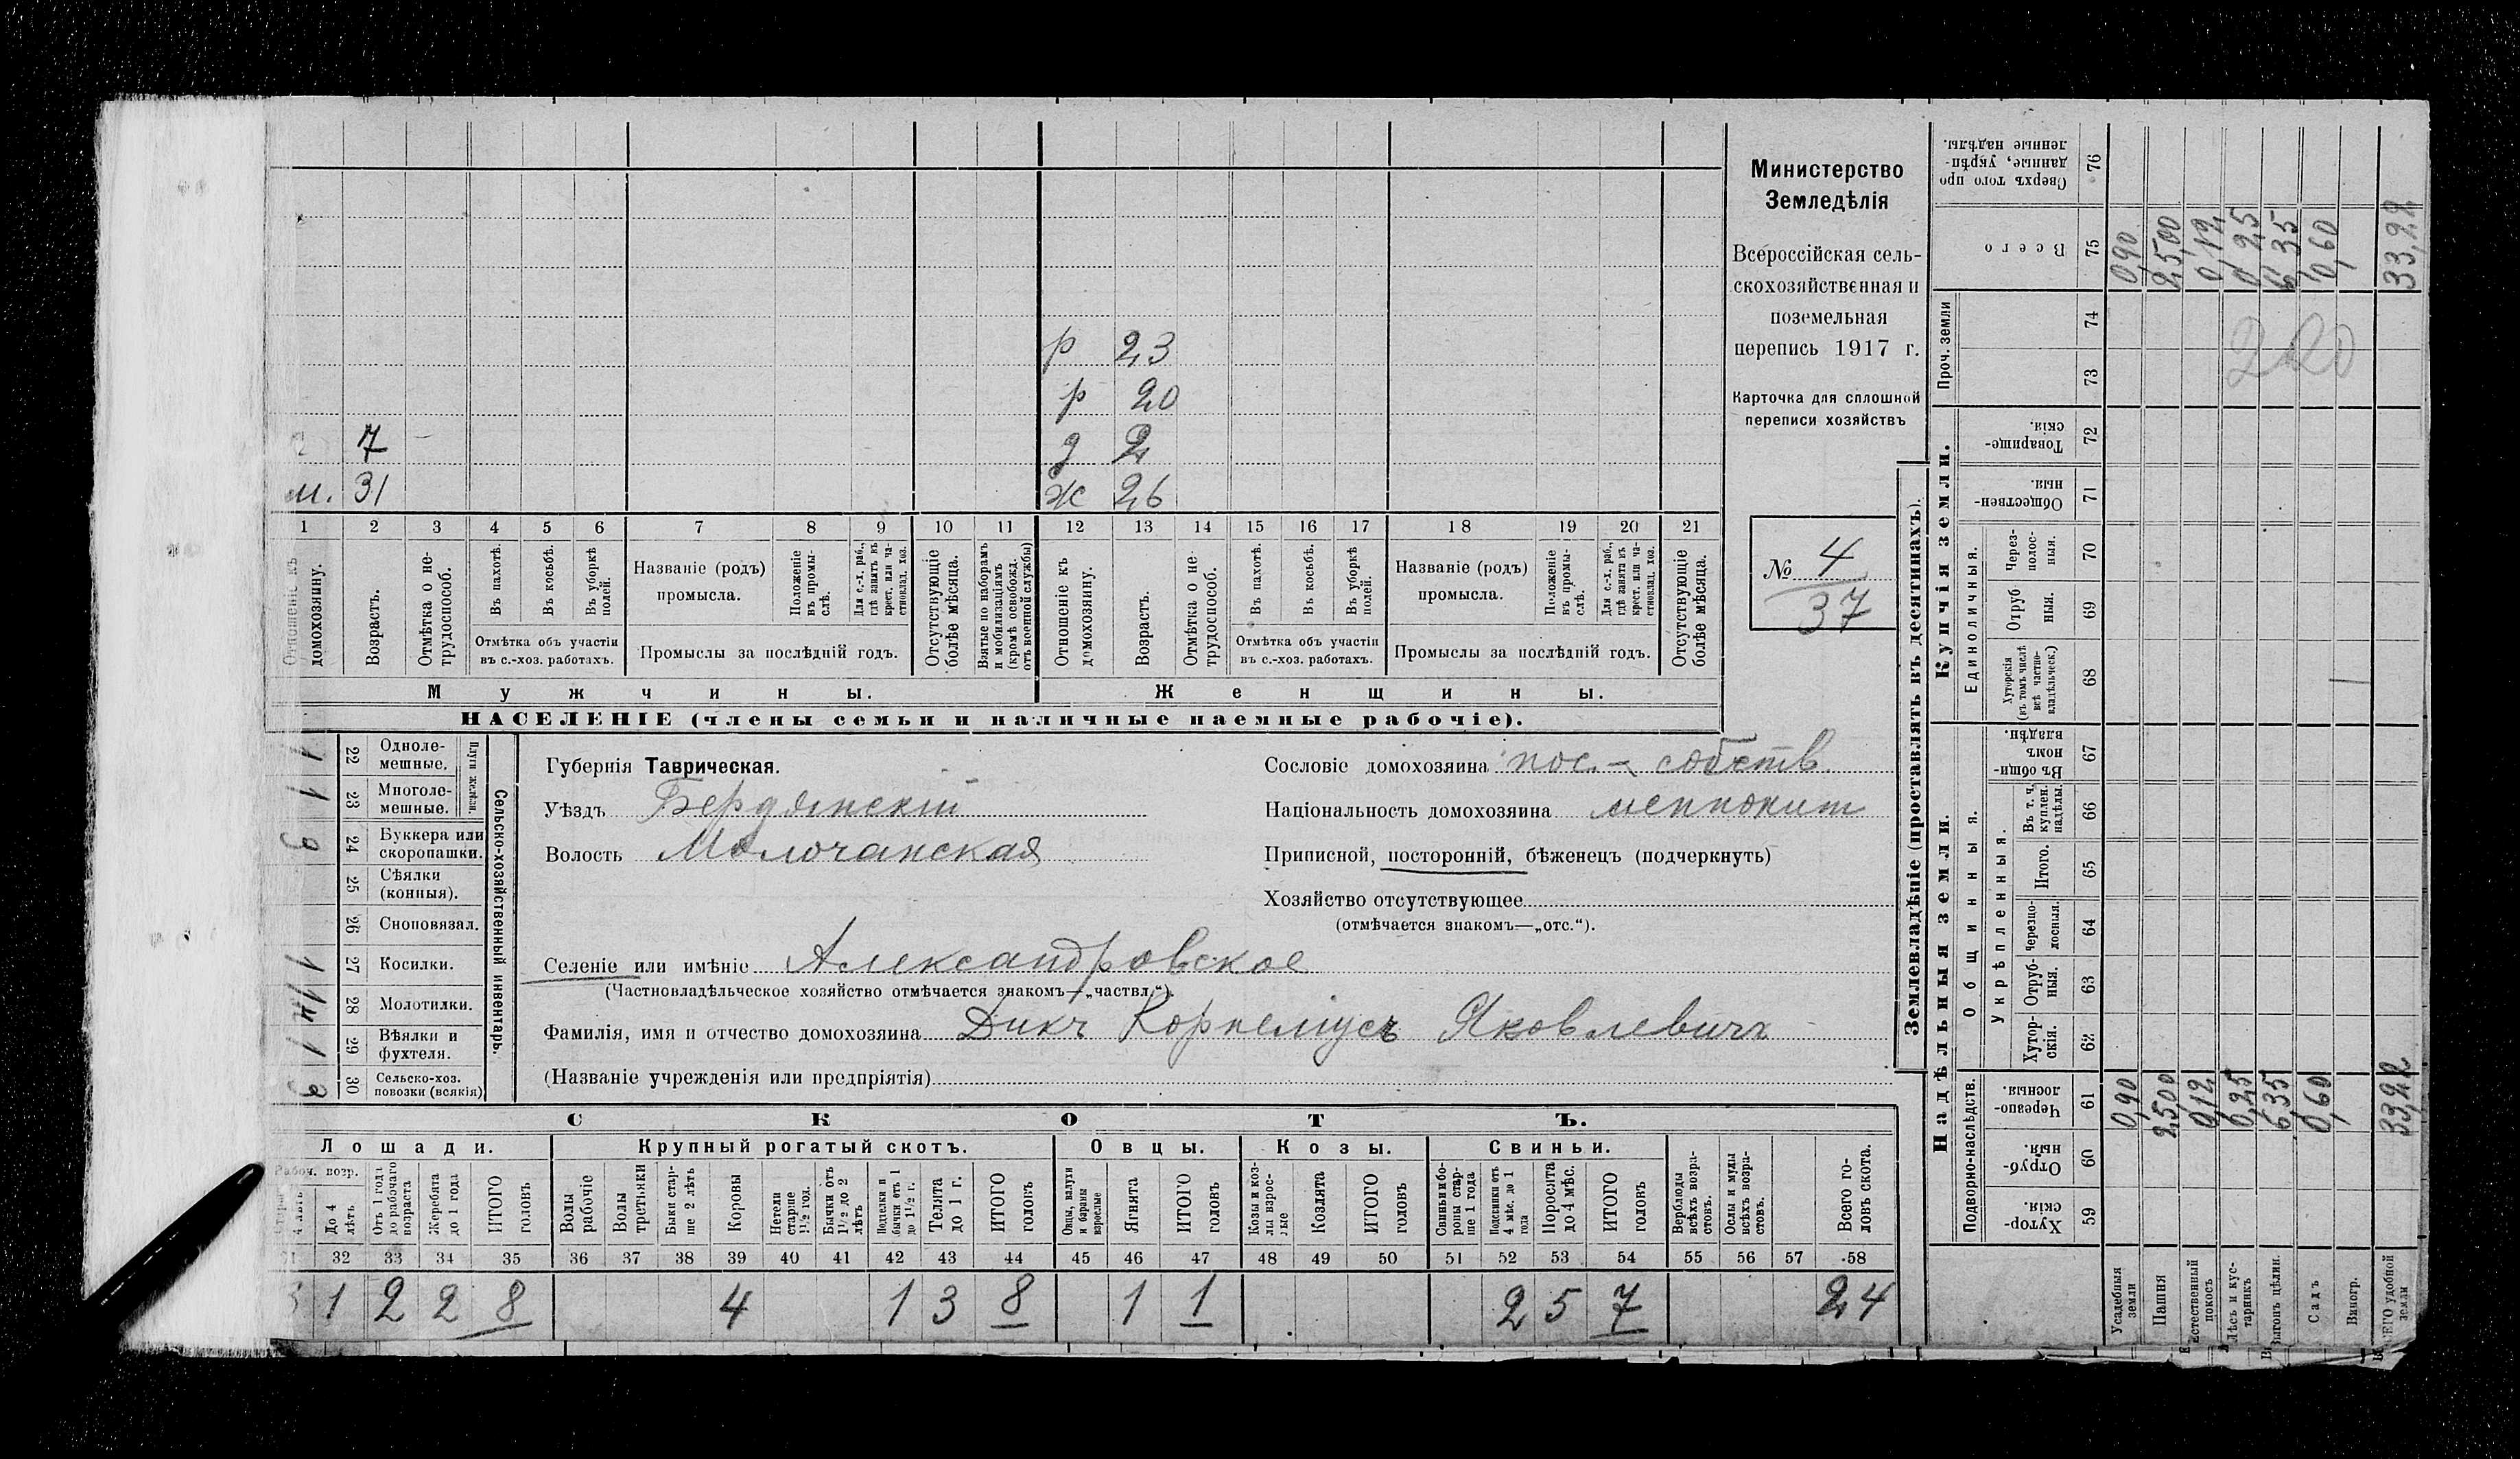 р 23
р 20
7 д 2
м. 31 ж 26
1 2 3 4 5 6 7 8 9 10 11 12 13 14 15 16 17 18 19 20 21
Отношеніе къ домохозяину.
Возрастъ.
Отмѣтка о нетрудоспособ.
Въ пахотѣ.
Въ косьбѣ.
Въ уборкѣ полей.
Отмѣтка объ участіи
въ с.-хоз. работахъ.
Названіе (родъ)
промысла.
Положеніе въ промыслѣ.
Для с.-х. раб., гдѣ занятъ въ крест. или частновлад. хоз.
Промыслы за послѣдній годъ.
Отсутствующіе болѣе мѣсяца.
Взятые по наборамъ и мобилизаціямъ (кромѣ освобожд. отъ военной службы)
Отношеніе къ домохозяину.
Возрастъ.
Отмѣтка о нетрудоспособ.
Въ пахотѣ.
Въ косьбѣ.
Въ уборкѣ полей.
Отмѣтка объ участіи
въ с.-хоз. работахъ.
Названіе (родъ)
промысла.
Положеніе въ промыслѣ.
Для с.-х. раб., гдѣ занята въ крест. или частновлад. хоз.
Промыслы за послѣдній годъ.
Отсутствующіе болѣе мѣсяца.
Мужчины. Женщины.
НАСЕЛЕНІЕ (члены семьи и наличные наемные рабочіе).
Министерство
Земледѣлія
Всероссійская сель-
скохозяйственная и
поземельная
перепись 1917 г.
Карточка для сплошной
переписи хозяйствъ
№ 4
37
Сельско-хозяйственный инвентарь.
Плуги желѣзн.
1 22 Одноле-
мешные.
1 23 Многоле-
мешные.
24 Буккера или
скоропашки.
25 Сѣялки
(конныя).
26 Сноповязал.
1 27 Косилки.
28 Молотилки.
1 29 Вѣялки и
фухтеля.
2 30 Сельско-хоз.
повозки (всякія)
Губернія Таврическая.
Уѣздъ Бердянскій
Волость Молочанская
Сословіе домохозяина пос.- собств.
Національность домохозяина меннонит
Приписной, посторонній, бѣженецъ (подчеркнуть)
Хозяйство отсутствующее
(отмѣчается знакомъ—„отс.“).
Селеніе или имѣніе Александровское
(Частновладѣльческое хозяйство отмѣчается знакомъ—„частвл.“).
Фамилія, имя и отчество домохозяина Дикъ Корнеліусъ Яковлевичъ
(Названіе учрежденія или предпріятія)
СКОТЪ.
Лошади. Крупный рогатый скотъ. Овцы. Козы. Свиньи.
Рабоч. возр.
До 4 лѣтъ
Отъ 1 года до рабочаго возраста
Жеребята до 1 года
ИТОГО головъ
Волы рабочіе
Волы третьяки
Быки старше 2 лѣтъ
Коровы
Нетели старше 1½ год.
Бычки отъ 1½ до 2 лѣтъ
Подтелки и бычки отъ 1 до 1½ г.
Телята до 1 г.
ИТОГО головъ
Овцы, валухи и бараны взрослые
Ягнята
ИТОГО головъ
Козы и козлы взрослые
Козлята
ИТОГО головъ
Свиньи боровы старше 1 года
Подсвинки отъ 4 мѣс. до 1 года
Поросята до 4 мѣс.
ИТОГО головъ
Верблюды всѣхъ возрастовъ.
Ослы и мулы всѣхъ возрастовъ.
Всего головъ скота.
31 32 33 34 35 36 37 38 39 40 41 42 43 44 45 46 47 48 49 50 51 52 53 54 55 56 57 58
3 1 2 2 8 4 1 3 8 1 1 2 5 7 24
Землевладѣніе (проставлять въ десятинахъ).
Надѣльныя земли. Купчія земли. Проч. земли
Подворно-наслѣдств.
Общинныя.
Укрѣпленныя.
Единоличныя.
Хуторскія. 59
Отрубныя. 60
Черезполосныя. 61
Хуторскія. 62
Отрубныя. 63
Черезполосныя. 64
Итого. 65
Въ т. ч. куплен. надѣлы. 66
Въ общинномъ владѣн. 67
Хуторскія (въ томъ числѣ всѣ частновладѣльческ.) 68
Отрубныя. 69
Черезполосныя. 70
Общественныя. 71
Товарищескія. 72
73
74
Всего 75
Сверхъ того проданные, укрѣпленные надѣлы. 76
Усадебныя земли 0,90 0,90
Пашня 25,00 25,00
Естественный покосъ 0,12 0,12
Лѣсъ и кустарникъ 0,25 0,25
Выгонъ цѣлин. 6,35 6,35
Садъ 0,60 0,60
Виногр.
ВСЕГО удобной земли 33,22 33,22
220